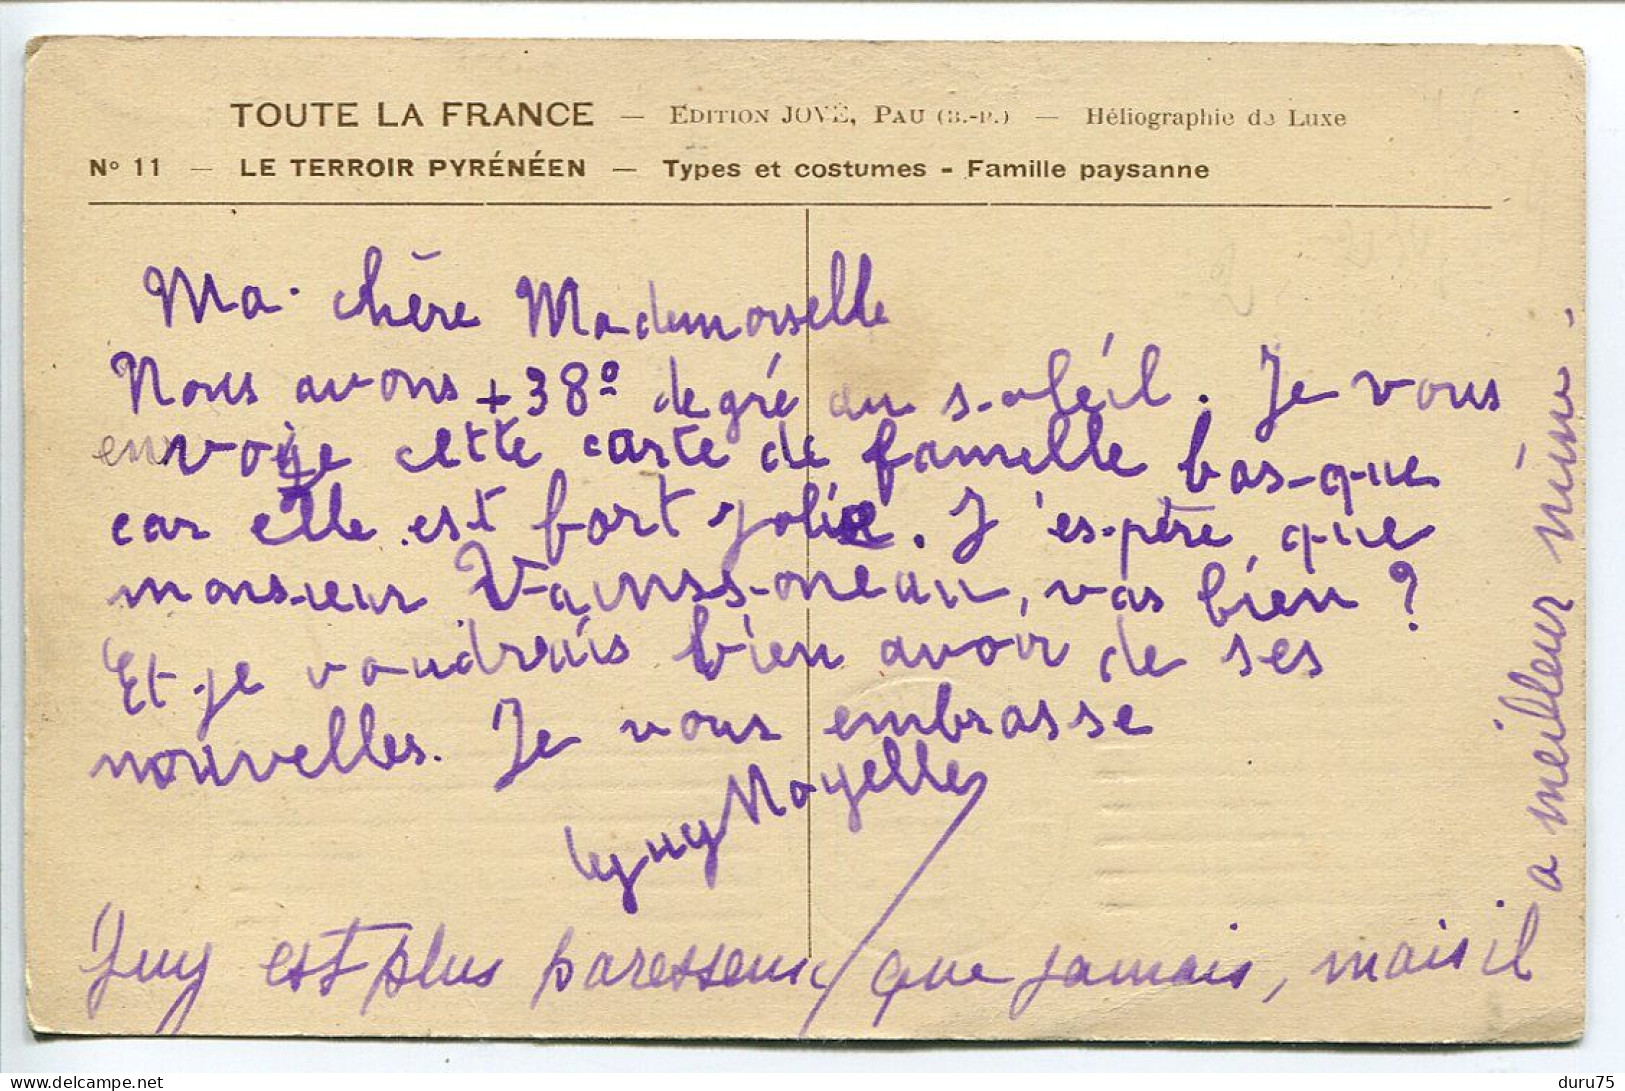 TOUTE LA FRANCE — EDITION JOVÉ, PAU (B.-P.) — Héliographie de Luxe
N° 11 — LE TERROIR PYRÉNÉEN — Types et costumes - Famille paysanne
Ma chère Mademoiselle
Nous avons +38° degré au soléil. Je vous
envoie cette carte de famille basque
car elle est fort jolie. J'espère que
monsieur Vainssoneau, vas bien ?
Et je voudrais bien avoir de ses
nouvelles. Je vous embrasse
Guy Noyelle
Guy est plus paresseux que jamais, mais il
a meilleur mine.
delcampe.net
duru75